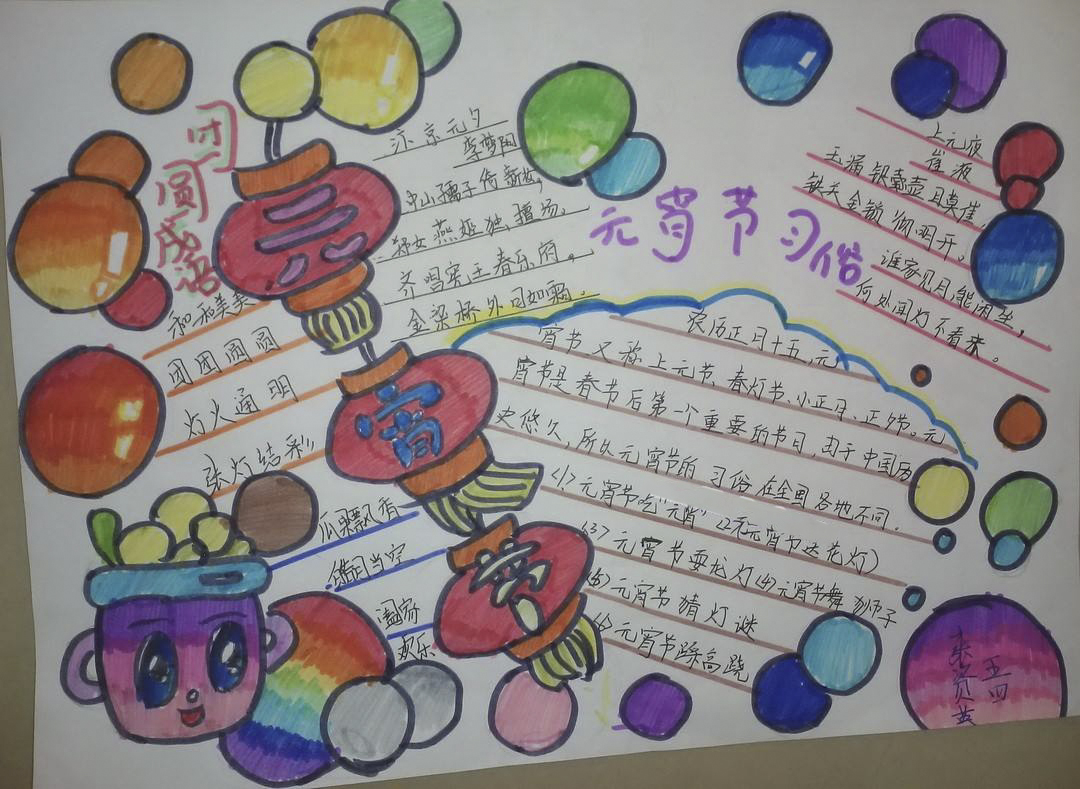 团圆成语
和和美美
团团圆圆
灯火通明
张灯结彩
瓜果飘香
皓月当空
阖家
欢乐
元
宵
节
汴京元夕
李梦阳
中山孺子倚新妆,
郑女燕姬独擅场。
齐唱宪王春乐府。
金梁桥外月如霜。
元宵节习俗
农历正月十五,元
宵节又称上元节、春灯节、小正月、正夕节。元
宵节是春节后第一个重要的节日,由于中国历
史悠久,所以元宵节的习俗在全国各地不同。
<1>元宵节吃“元宵”<2>元宵节送花灯)
<3>元宵节耍龙灯<4>元宵节舞狮子
<5>元宵节猜灯谜
<6>元宵节踩高跷
上元夜
崔液
玉漏银壶且莫催,
铁关金锁彻明开。
谁家见月能闲坐,
何处闻灯不看来。
五四